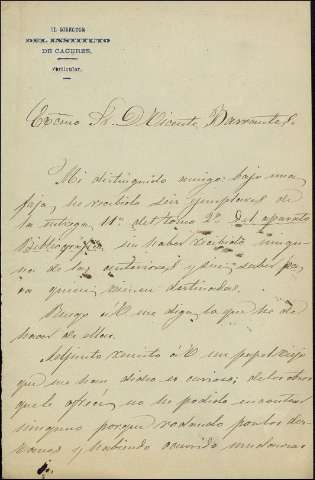 EL DIRECTOR
DEL INSTITUTO
DE CACERES.
Particular.
Excmo Sr. D. Vicente Barrantes.
Mi distinguido amigo: bajo una
faja, he recibido seis ejemplares de
la entrega 11ª del tomo 2º Del aparato
Bibliográfico, sin haber recibido ningu
na de las anteriores y sin saber pa
ra quien vienen destinadas.
Ruego á V. me diga lo que he de
hacer de ellas.
Adjunto remito á V. un papel viejo
que me han dicho es curioso; de los otros
que le ofrecí no he podido encontrar
ninguno porque rodando por los des
vanes y habiendo ocurrido mudanzas